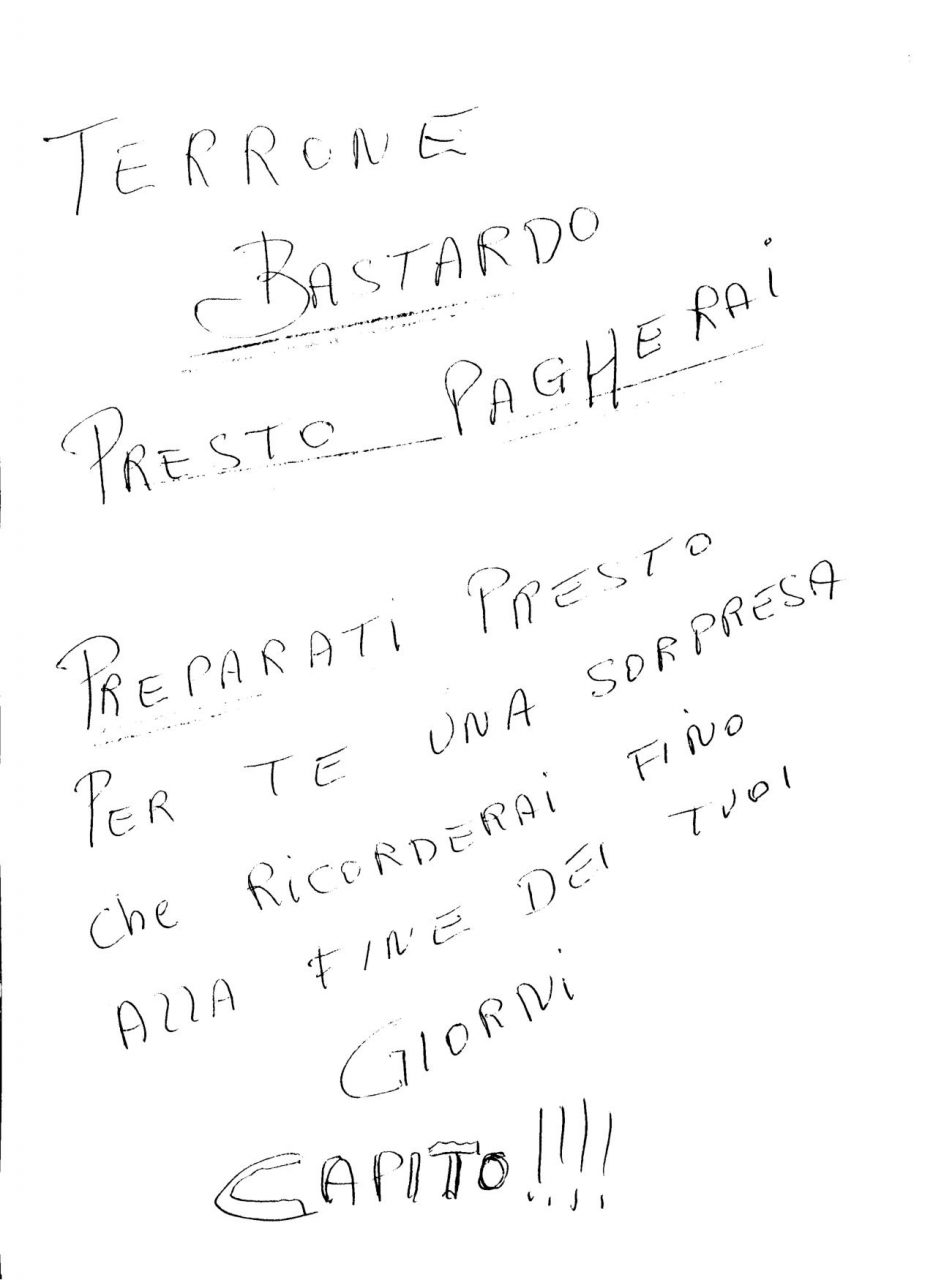 TERRONE
BASTARDO
PRESTO PAGHERAi
PREPARATi PRESTO
PER TE UNA SORPRESA
Che RiCORDERAi FiNO
ALLA FINE DEI TUOI
GIORNi
CAPITO!!!!